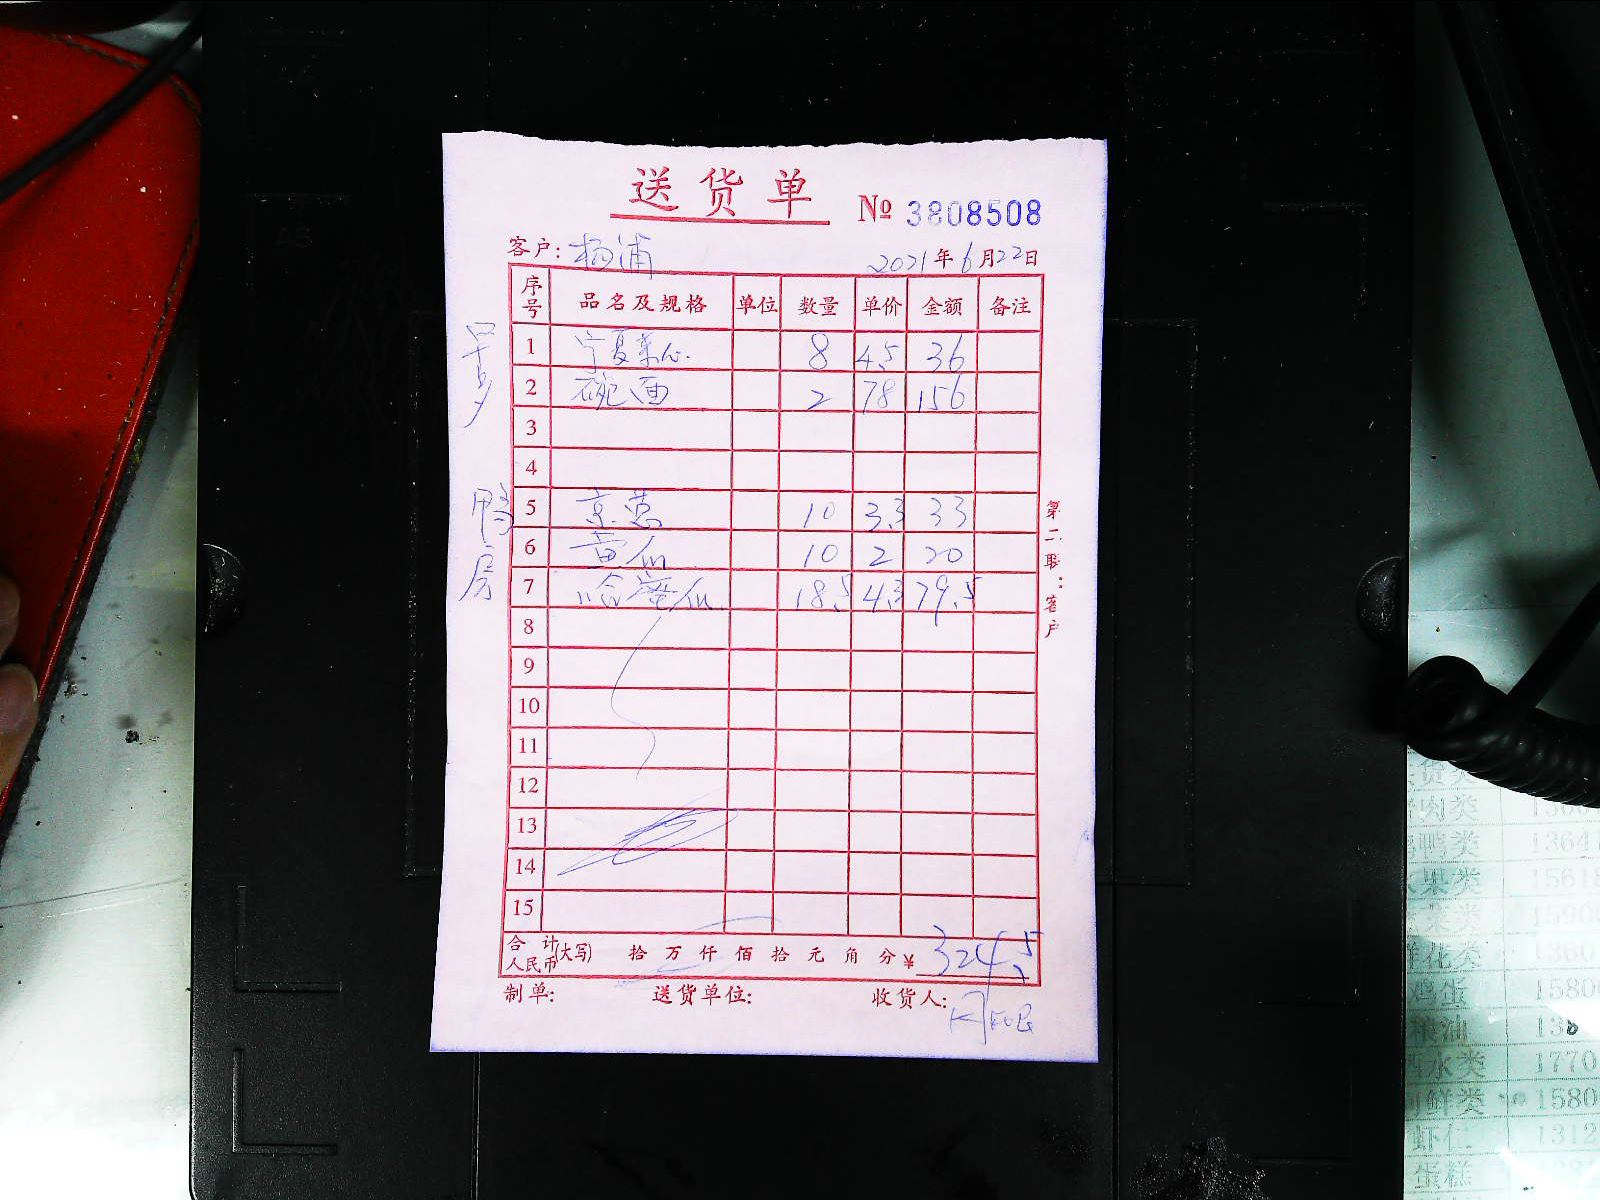 送货单 № 3808508
客户: 杨浦 2021年6月22日
序号 品名及规格 单位 数量 单价 金额 备注
1 宁夏菜心 8 4.5 36
2 碗面 2 78 156
3
4
鸭房
5 京葱 10 3.3 33
6 黄瓜 10 2 20
7 哈蜜瓜 18.5 4.3 79.5
8
9
10
11
12
13
14
15
合计人民币(大写) 拾 万 仟 佰 拾 元 角 分 ¥ 324.5
制单: 送货单位: 收货人:
第二联:客户
肉类
鸭类 1364
果类 1561
菜类 1590
鲜花类 1360
鸡蛋 1580
粮油 138
酒水类 1770
鲜类 1580
虾仁 1312
蛋糕